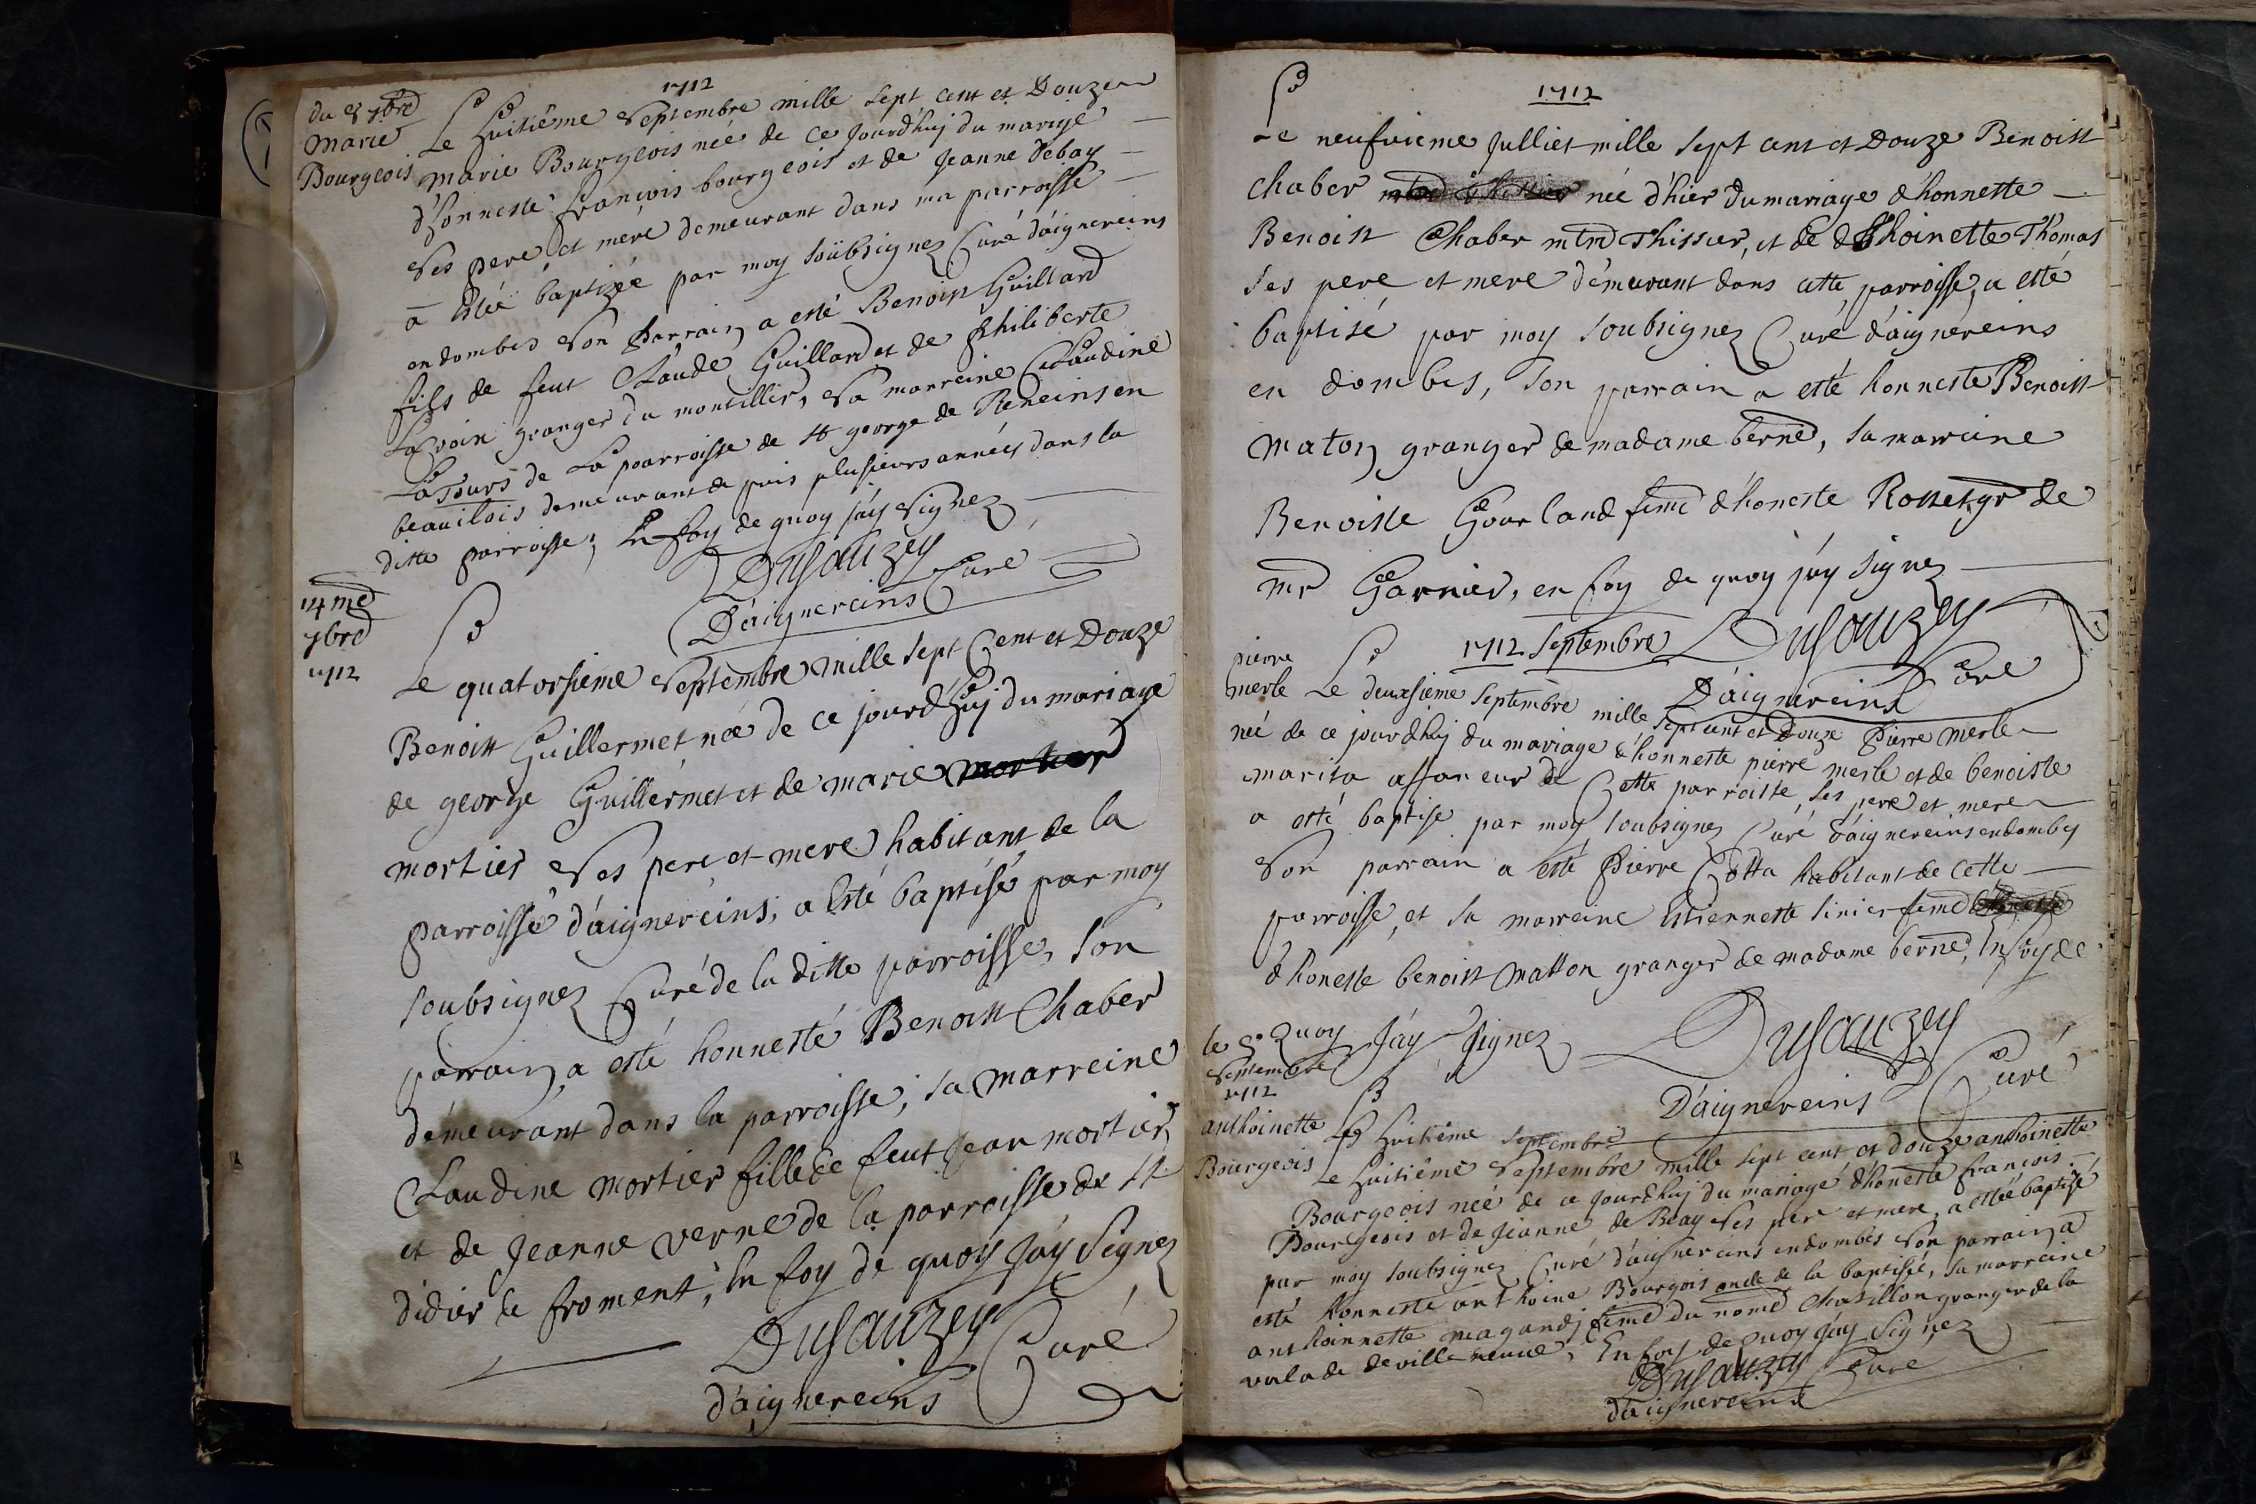 1712
du 8 7bre
Marie
Bourgeois
Le huitiême Septembre mille sept cent et Douze
marie Bourgeois née de ce jourd'huj du mariage
d'honneste françois bourgeois et de Jeanne Debay
Ses pere et mere demeurant dans ma parroisse
a Estée baptizée par moy soübsignez Curé d'aignereins
en dombes Son Parrain a esté Benoist Guillard
fils de feut Claude Guillard et de philiberte
Lavoix granger du montillier, Sa marreine Claudine
La Tours de La parroisse de st george de Reneins en
beauilois demeurant de puis plusieurs années dans la
ditte parroisse; En foy de quoy j'aÿ Signez
Dusauzey
Curé
D'aignereins
14 me
7bre
1712
Le quatorsieme Septembre mille sept Cent et Douze
Benoist Guillermet née de ce jourd'huj du mariage
de george Guillermet et de marie mortier
mortier Ses pere et mere habitant de la
parroisse d'aignereins, a Esté baptisé par moy
soubsignez Curé de la ditte parroisse, son
parrain a esté honnesté Benoist Chaber
demeurant dans la parroisse, sa marreine
Claudine mortier fille de feut Jean mortier
et de Jeanne verne de la parroisse de st
didier le froment, En foy de quoy J'aÿ Signez
Dusauzey
Curé
d'aignereins
1712
Le neufvieme Julliet mille sept cent et Douze Benoist
chaber née d'hier du mariage d'honnette
Benoist Chaber mtre Thissier, et de Thoinette Thomas
ses pere et mere demeurant dans cette parroisse, a esté
baptisé par moy soubsignez Curé d'aignereins
en dombes, son parrain a esté honneste Benoist
maton granger de madame berne, sa marreine
Benoiste Gourland feme d'honeste Rosset gr de
mr Garnier, en foy de quoy j'aÿ signez
Dusauzey
Curé
D'aignereins
1712 Septembre
pierre
merle
Le deuxsieme septembre mille sept cent et Douze Pierre merle
née de ce jourdhuj du mariage d'honneste pierre merle et de benoiste
marita affaneur de Cette parroisse, ses pere et mere
a esté baptise par moy soubsignez Curé d'aignereins en dombes
Son parrain a esté Pierre Cotta habitant de Cette
parroisse, et sa marreine Estiennette sinier feme
d'honeste benoist matton granger de madame berne, En foy de
Quoy J'aÿ Signez
Dusauzey
Curé
D'aignereins
le 8e
Septembre
1712
anthoinette
Bourgeois
Le huitiême septembre
Le huitiême Septembre mille sept cent et douze anthoinette
Bourgeois née de ce jourdhuj du mariage d'honeste françois
Bourgeois et de Jeanne de Beay Ses pere et mere, a estée baptizé
par moy soubsignez Curé d'aignereins en dombes Son parrain a
esté honneste anthoine Bourgois oncle de la baptisée, sa marreine
anthoinnette magandj feme du nomé Chatillon granger de la
valade de ville neuve, En foy de quoy j'aÿ signez
Dusauzey Curé
d'aignereins